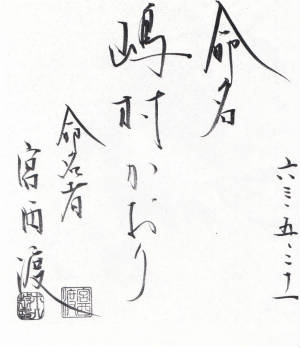 六三・五・三十一
命名
嶋村かおり
命名者
宮西渡